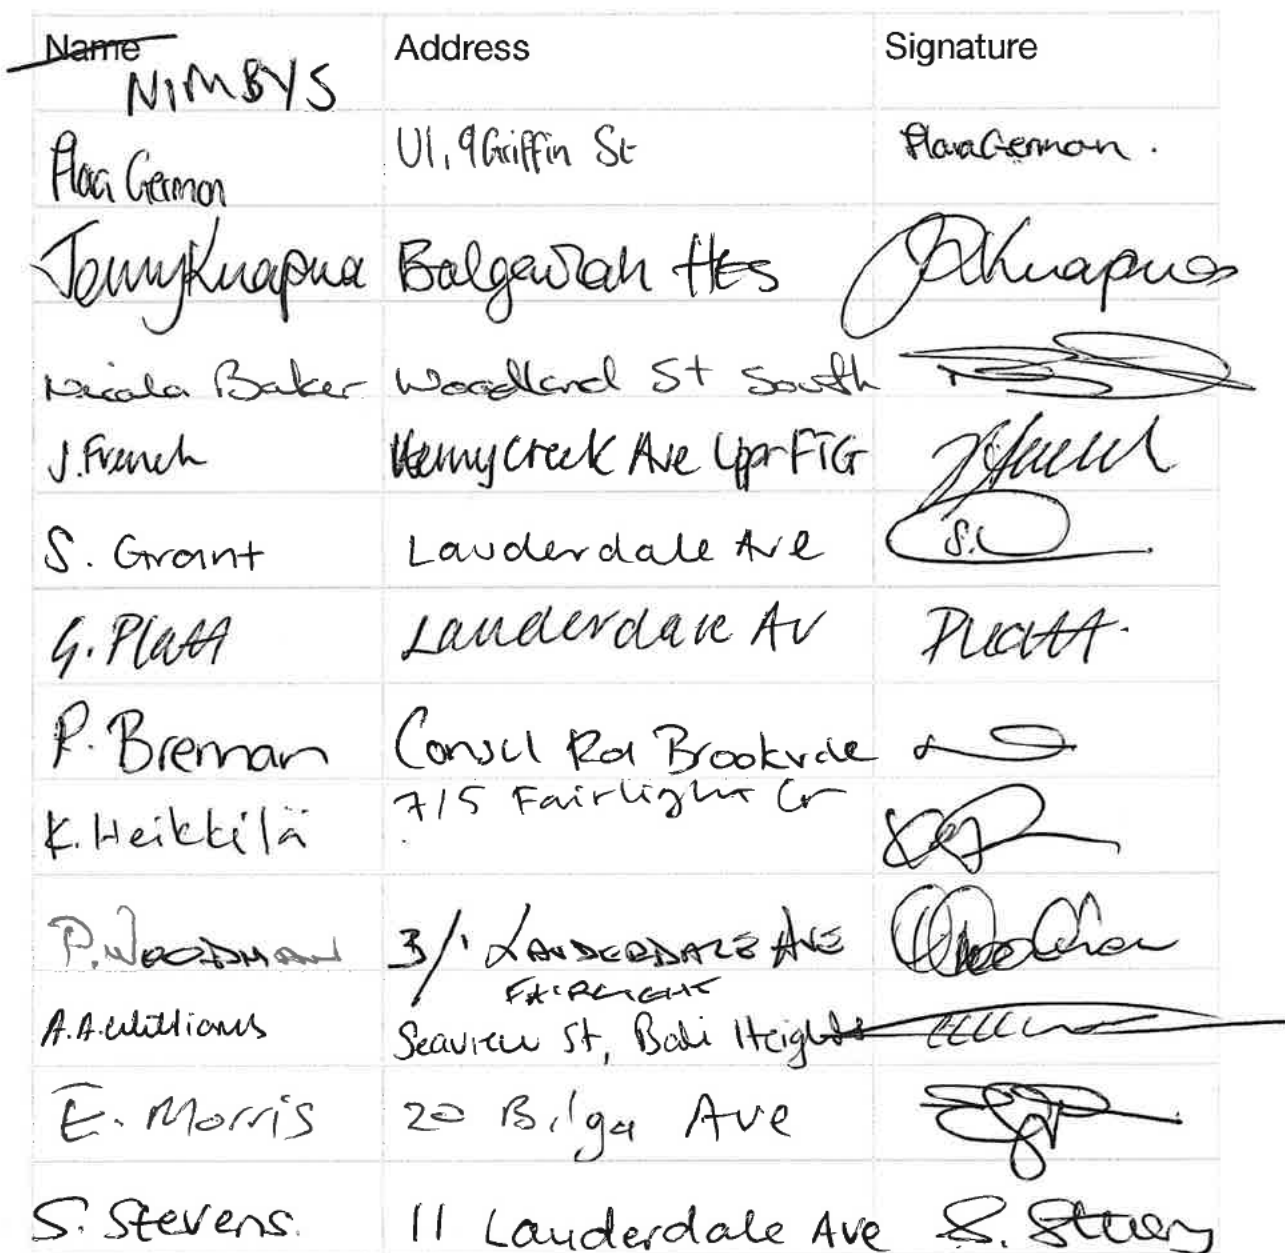 Name Address Signature
NIMBYS
German U1, 9 Griffin St German.
Jenny Knapua Balgowlah Hts Knapua
Nicola Baker Woodland St South
J. French Creek Ave Upr FTG French
S. Grant Lauderdale Ave S.
G. Platt Lauderdale Av Platt.
P. Brennan Consul Rd Brookvale
K. Heikkilä 7/5 Fairlight Cr
P. WOODMAN 3/1 LAUDERDALE AVE
FAIRLIGHT
A.A. Williams Seaview St, Bali Heights
E. Morris 20 Bilga Ave
S. Stevens. 11 Lauderdale Ave S. Stevens